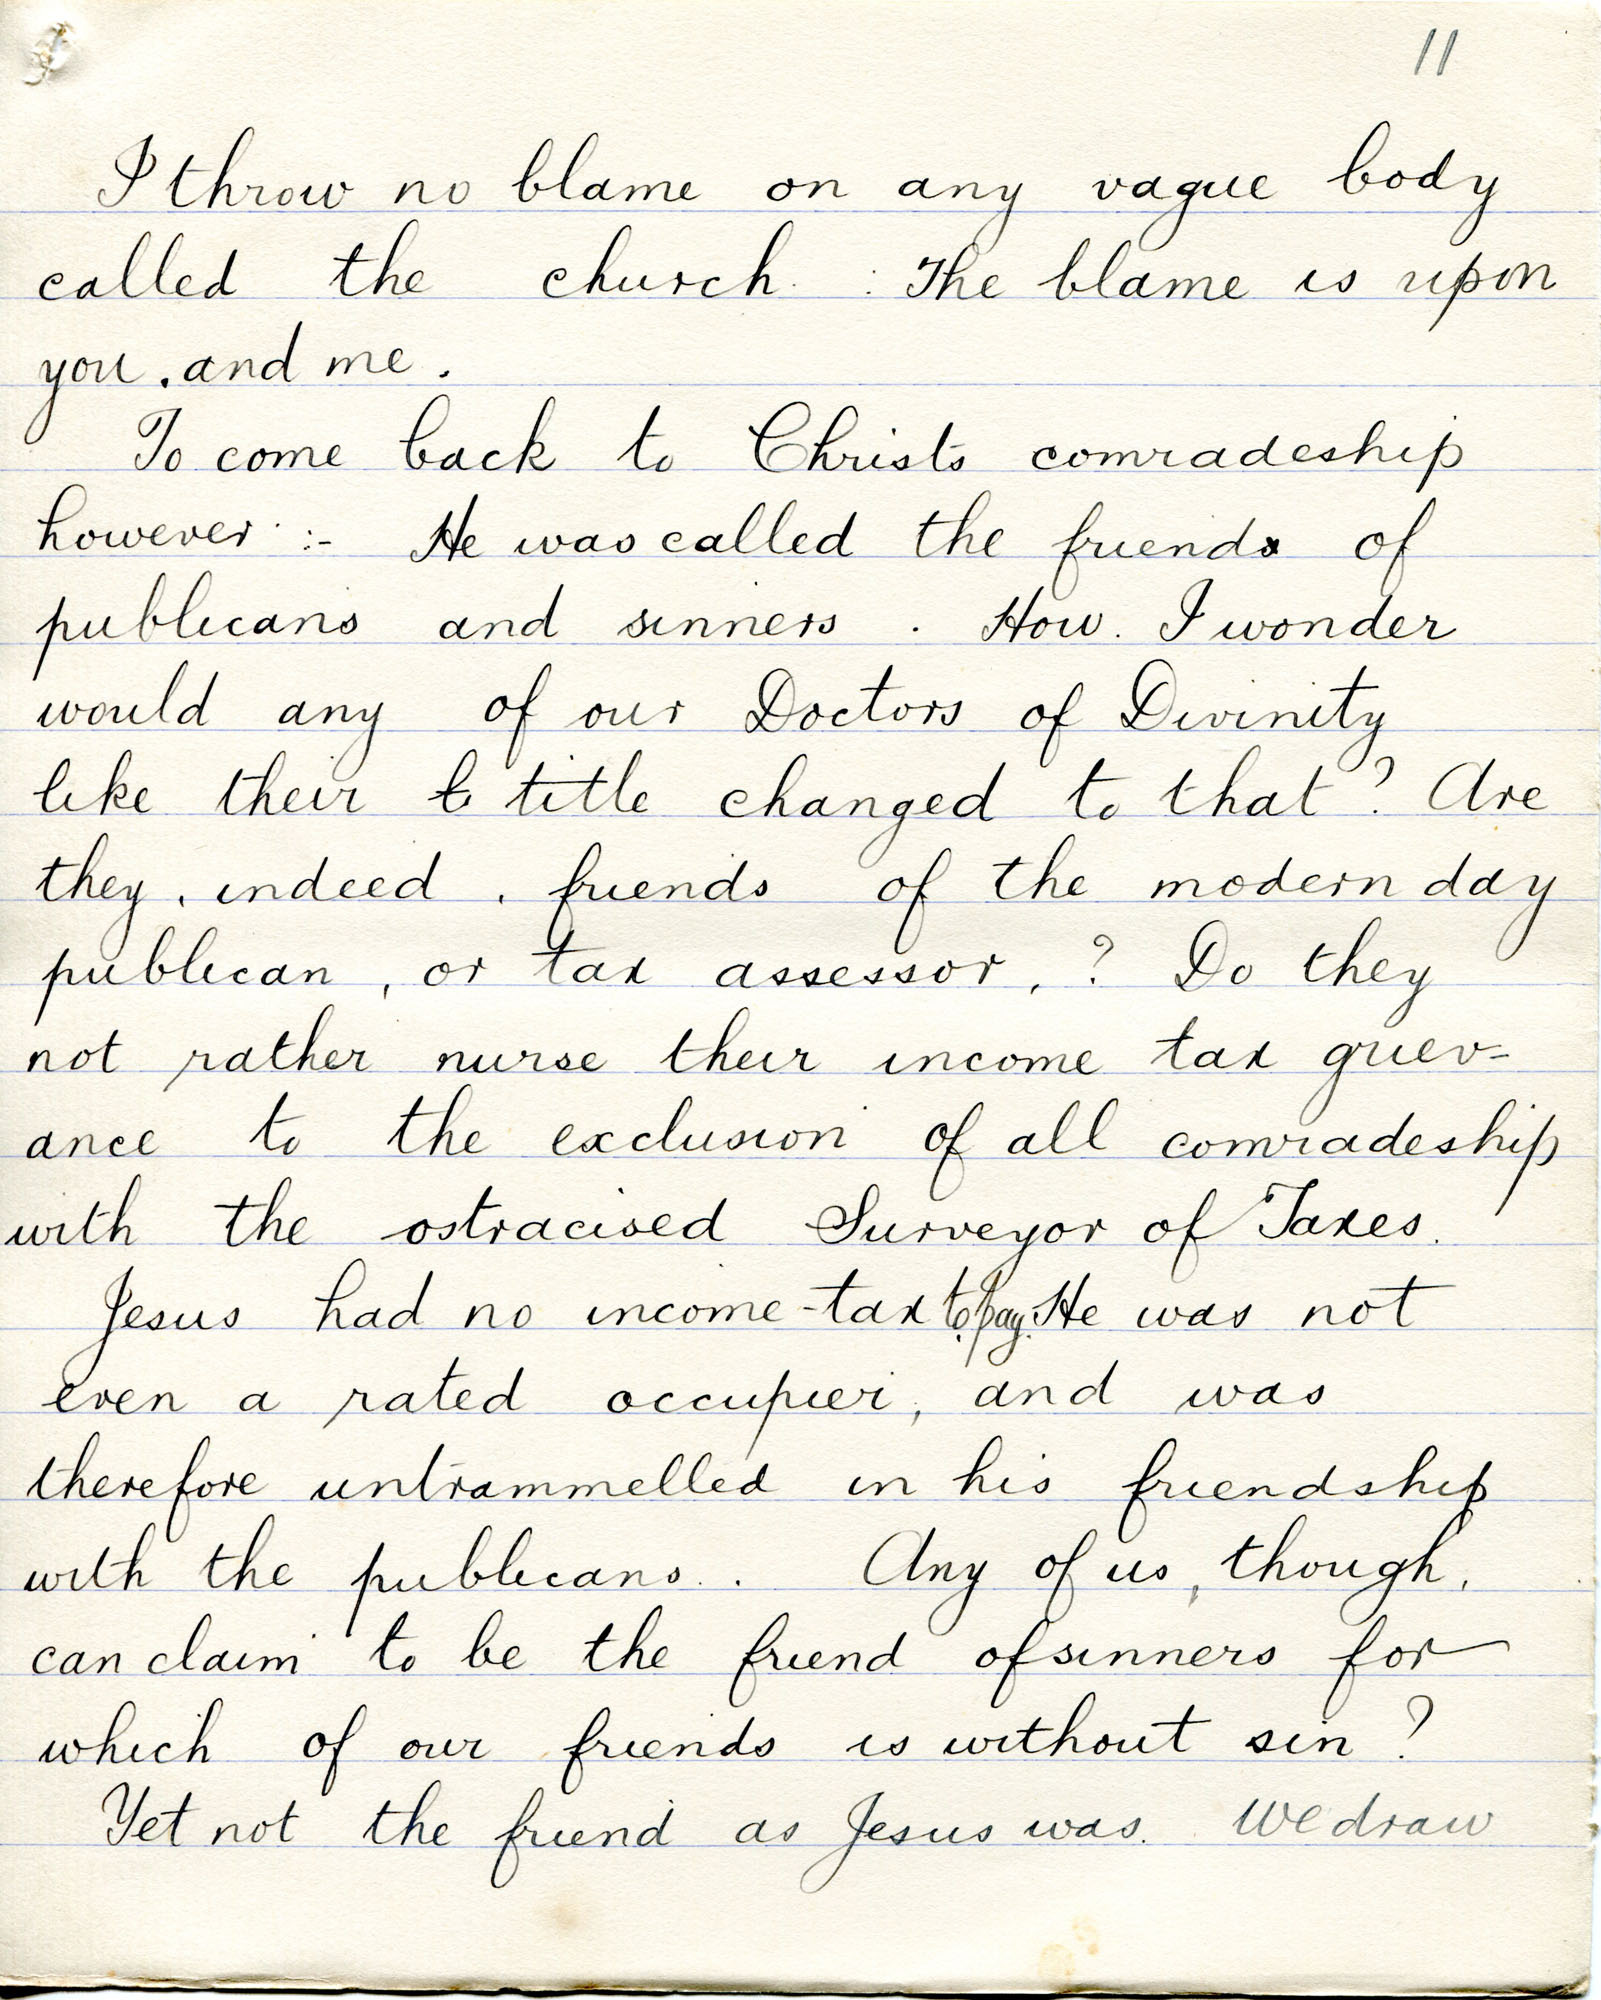 11
I throw no blame on any vague body
called the church. : The blame is upon
you. and me.
To come back to Christs comradeship
however :- He was called the friend of
publicans and sinners. How. I wonder
would any of our Doctors of Divinity
like their title changed to that? Are
they, indeed, friends of the modern day
publican, or tax assessor, ? Do they
not rather nurse their income tax griev-
ance to the exclusion of all comradeship
with the ostracised Surveyor of Taxes.
Jesus had no income-tax to pay. He was not
even a rated occupier, and was
therefore untrammelled in his friendship
with the publicans. . Any of us, though,
can claim to be the friend of sinners for
which of our friends is without sin?
Yet not the friend as Jesus was. We draw